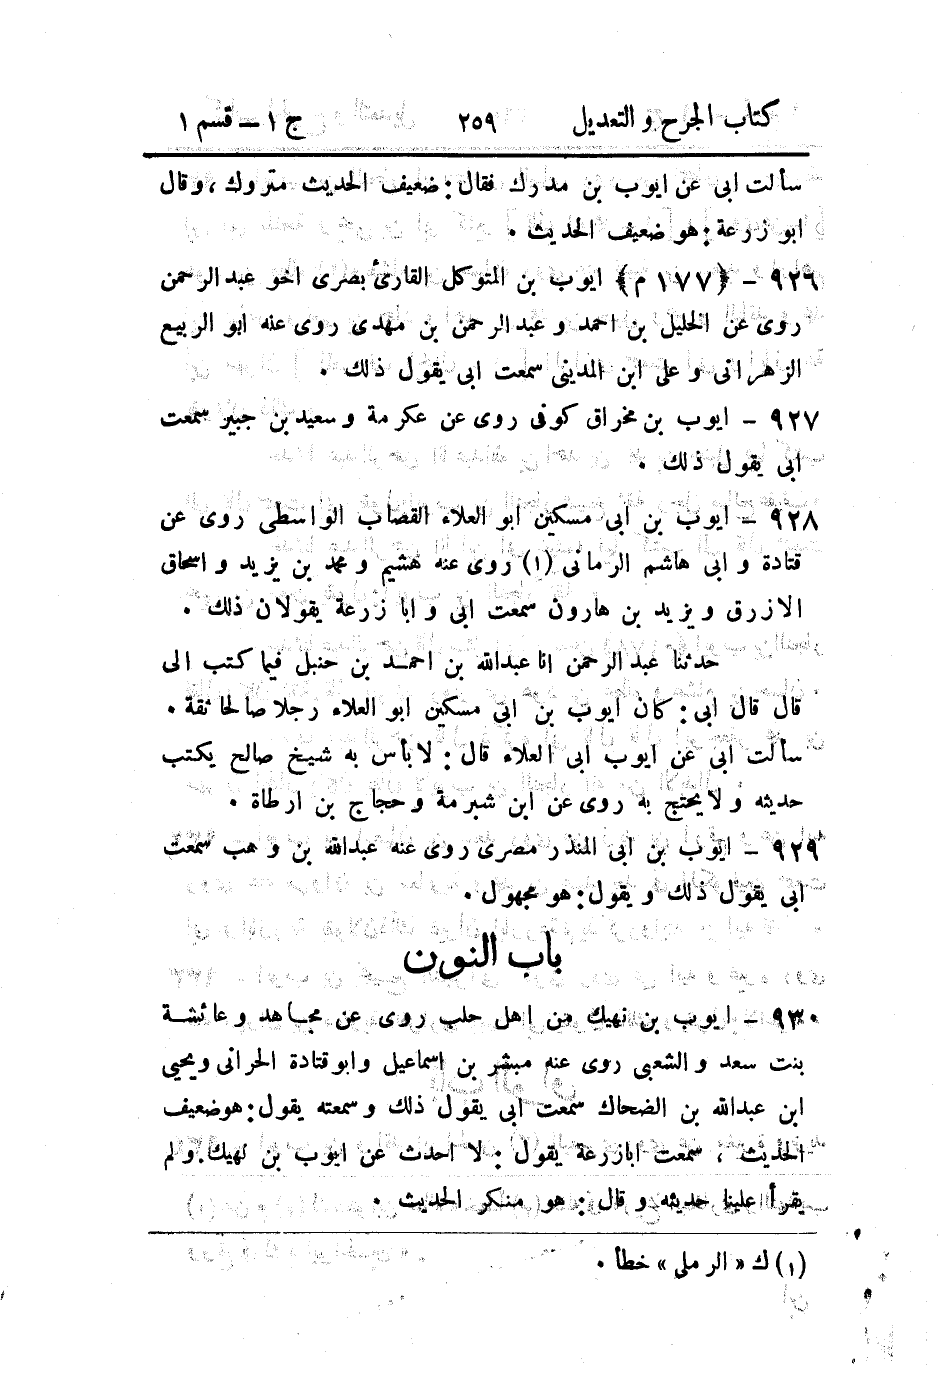 كتاب الجرح و التعديل ٢٥٩ ج ١ – قسم ١
سألت ابى عن ايوب بن مدرك فقال: ضعيف الحديث متروك ، وقال
ابو زرعة: هو ضعيف الحديث .
٩٢٦ – (١٧٧ م) ايوب بن المتوكل القارئ بصرى اخو عبد الرحمن
روى عن الخليل بن احمد و عبد الرحمن بن مهدى روى عنه ابو الربيع
الزهرانى و على ابن المدينى سمعت ابى يقول ذلك .
٩٢٧ – ايوب بن مخراق كوفى روى عن عكرمة و سعيد بن جبير سمعت
ابى يقول ذلك .
٩٢٨ – ايوب بن ابى مسكين ابو العلاء القصاب الواسطى روى عن
قتادة و ابى هاشم الرمانى (١) روى عنه هشيم و محمد بن يزيد و اسحاق
الازرق و يزيد بن هارون سمعت ابى و ابا زرعة يقولان ذلك .
حدثنا عبد الرحمن انا عبدالله بن احمد بن حنبل فيما كتب الى
قال قال ابى: كان ايوب بن ابى مسكين ابو العلاء رجلا صالحا ثقة .
سألت ابى عن ايوب ابى العلاء قال: لا بأس به شيخ صالح يكتب
حديثه و لا يحتج به روى عن ابن شبرمة و حجاج بن ارطاة .
٩٢٩ – ايوب بن ابى المنذر مصرى روى عنه عبدالله بن وهب سمعت
ابى يقول ذلك و يقول: هو مجهول .
باب النون
٩٣٠ – ايوب بن نهيك من اهل حلب روى عن مجاهد و عائشة
بنت سعد و الشعبى روى عنه مبشر بن اسماعيل وابو قتادة الحرانى ويحيى
ابن عبدالله بن الضحاك سمعت ابى يقول ذلك و سمعته يقول: هو ضعيف
الحديث ، سمعت ابا زرعة يقول : لا احدث عن ايوب بن نهيك. و لم
يقرأ علينا حديثه و قال : هو منكر الحديث .
(١) ك « الرملى » خطأ .